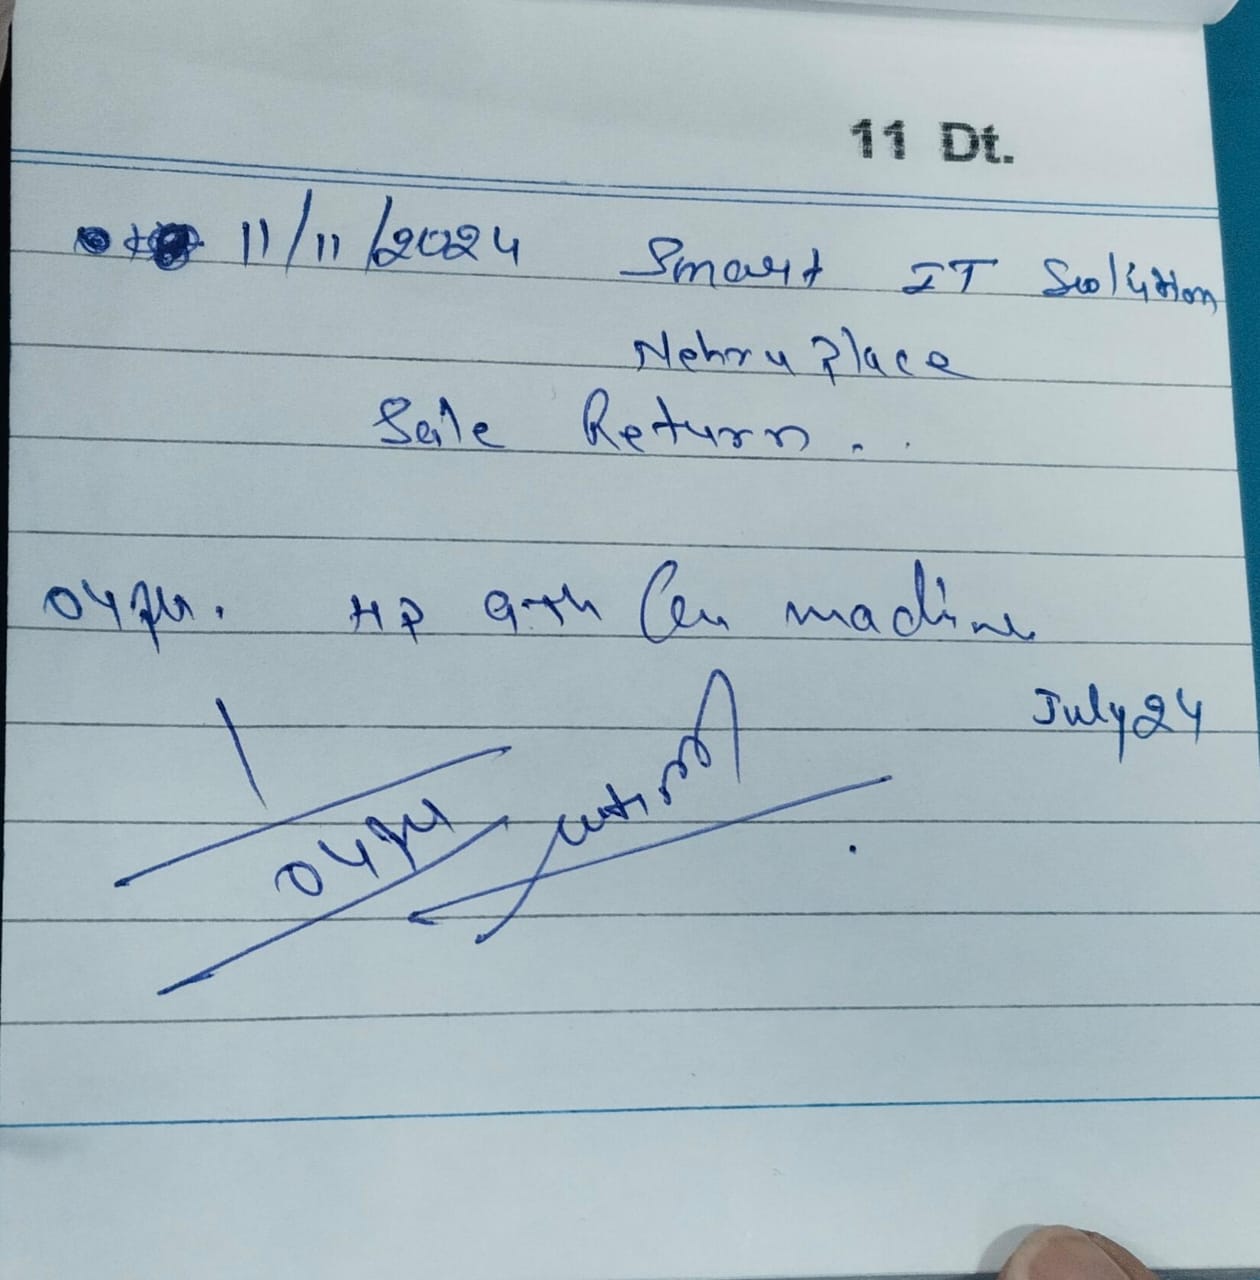 11 Dt.
11/11/2024 Smart IT Solution
Nehru Place
Sale Return..
04 HP 9th Gen machine
July 24
04